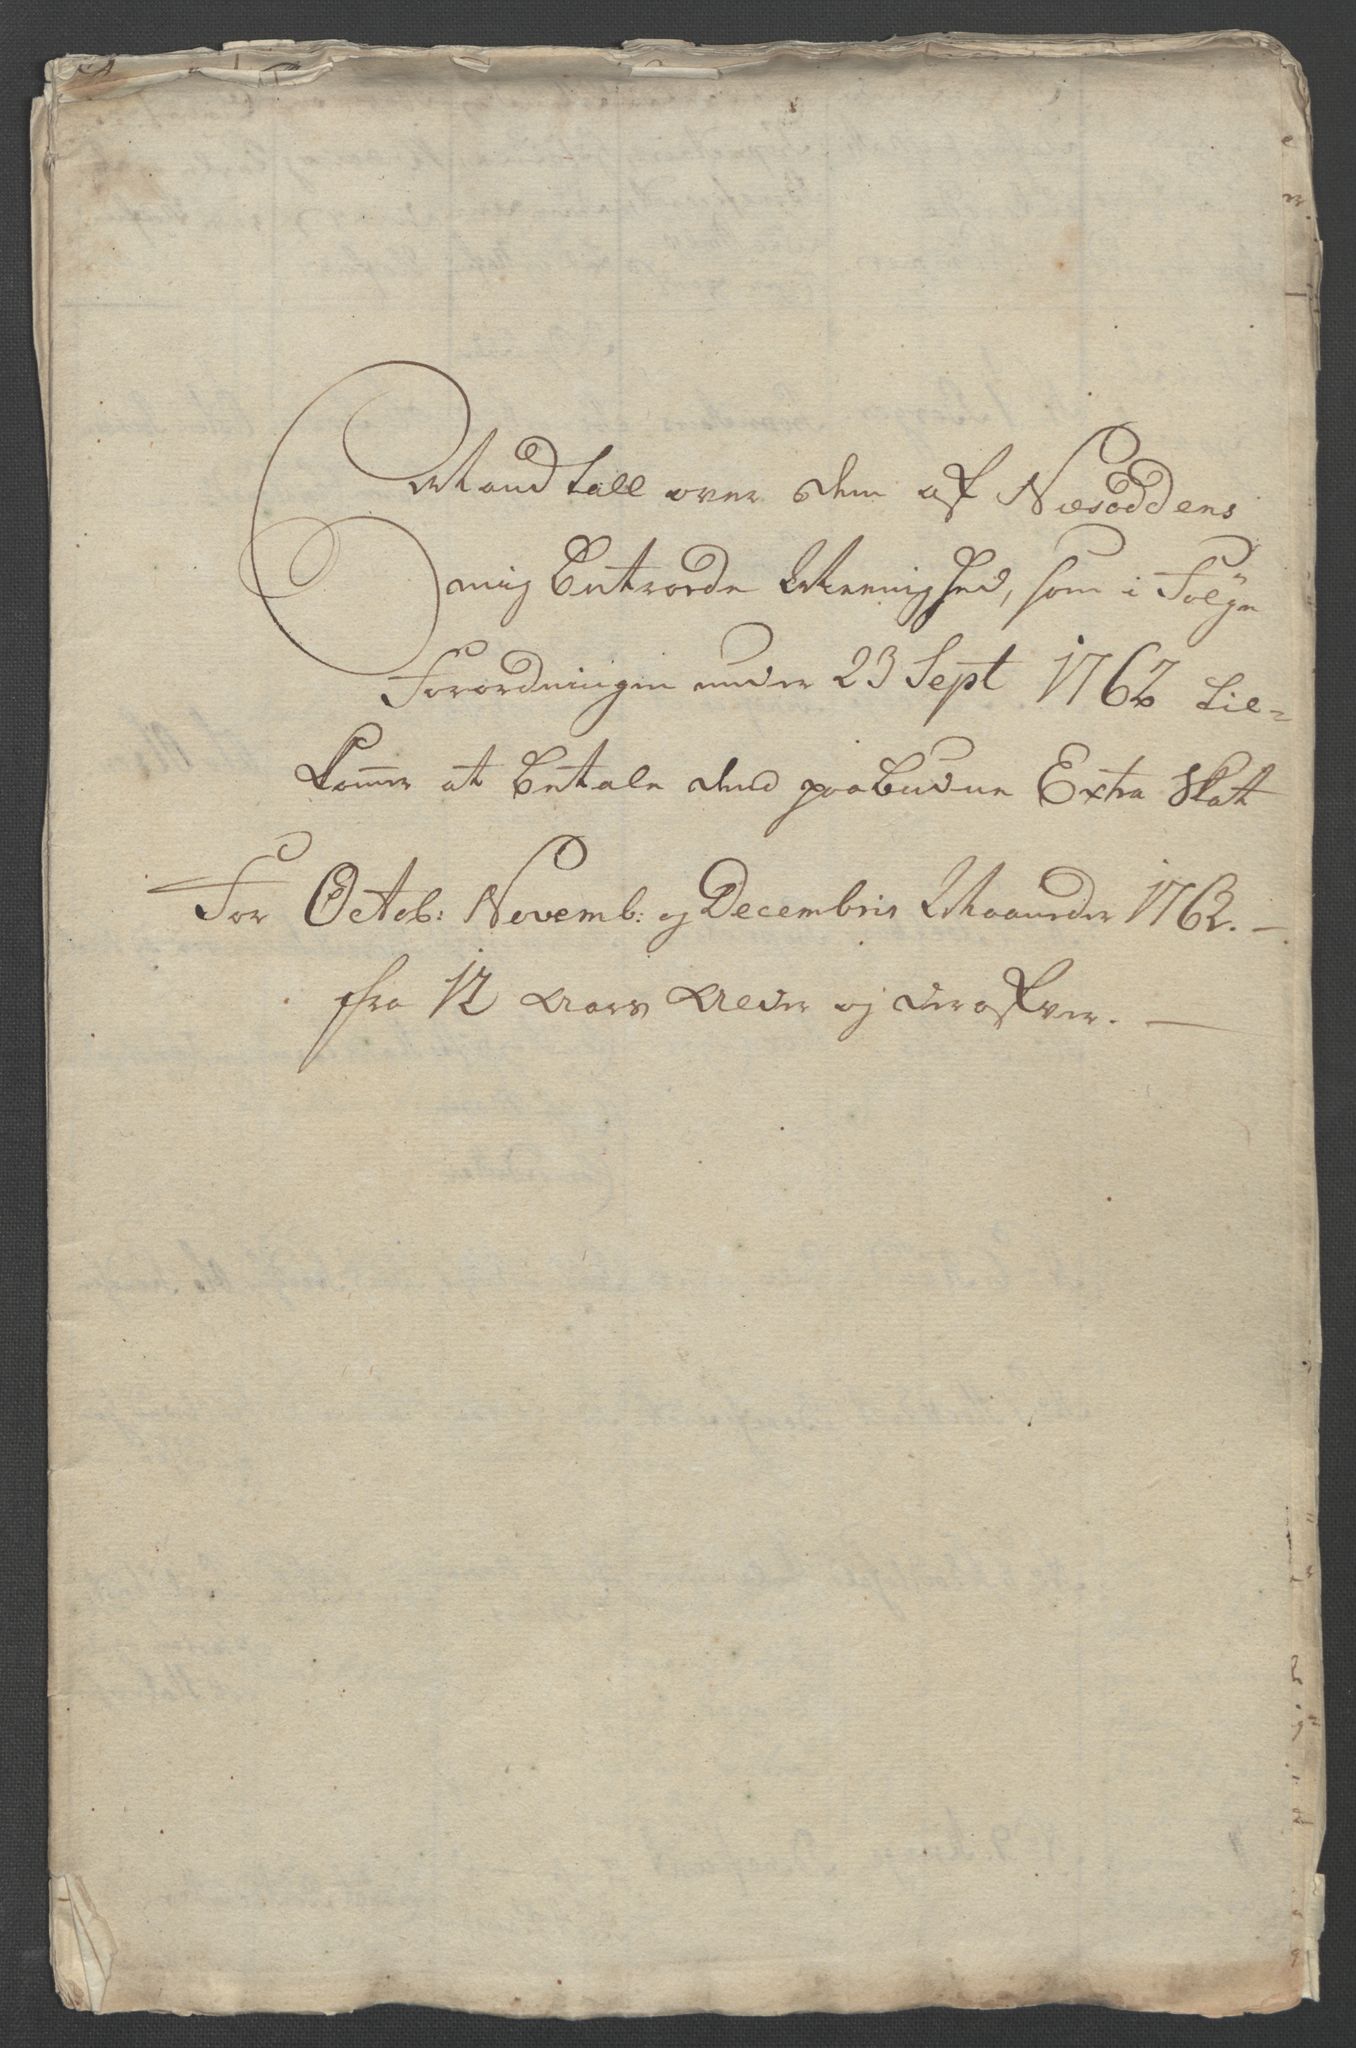 Mandtall over dem af Næsoddens
mig betroede Meenighed, som i Følge
Forordningen under 23 Sept 1762 til=
kom̄er at betale dend paabudne Extra Skat
For Octob: Novemb: og Decembris Maaneder 1762. —
fra 12 Aars Alder og derofver. —